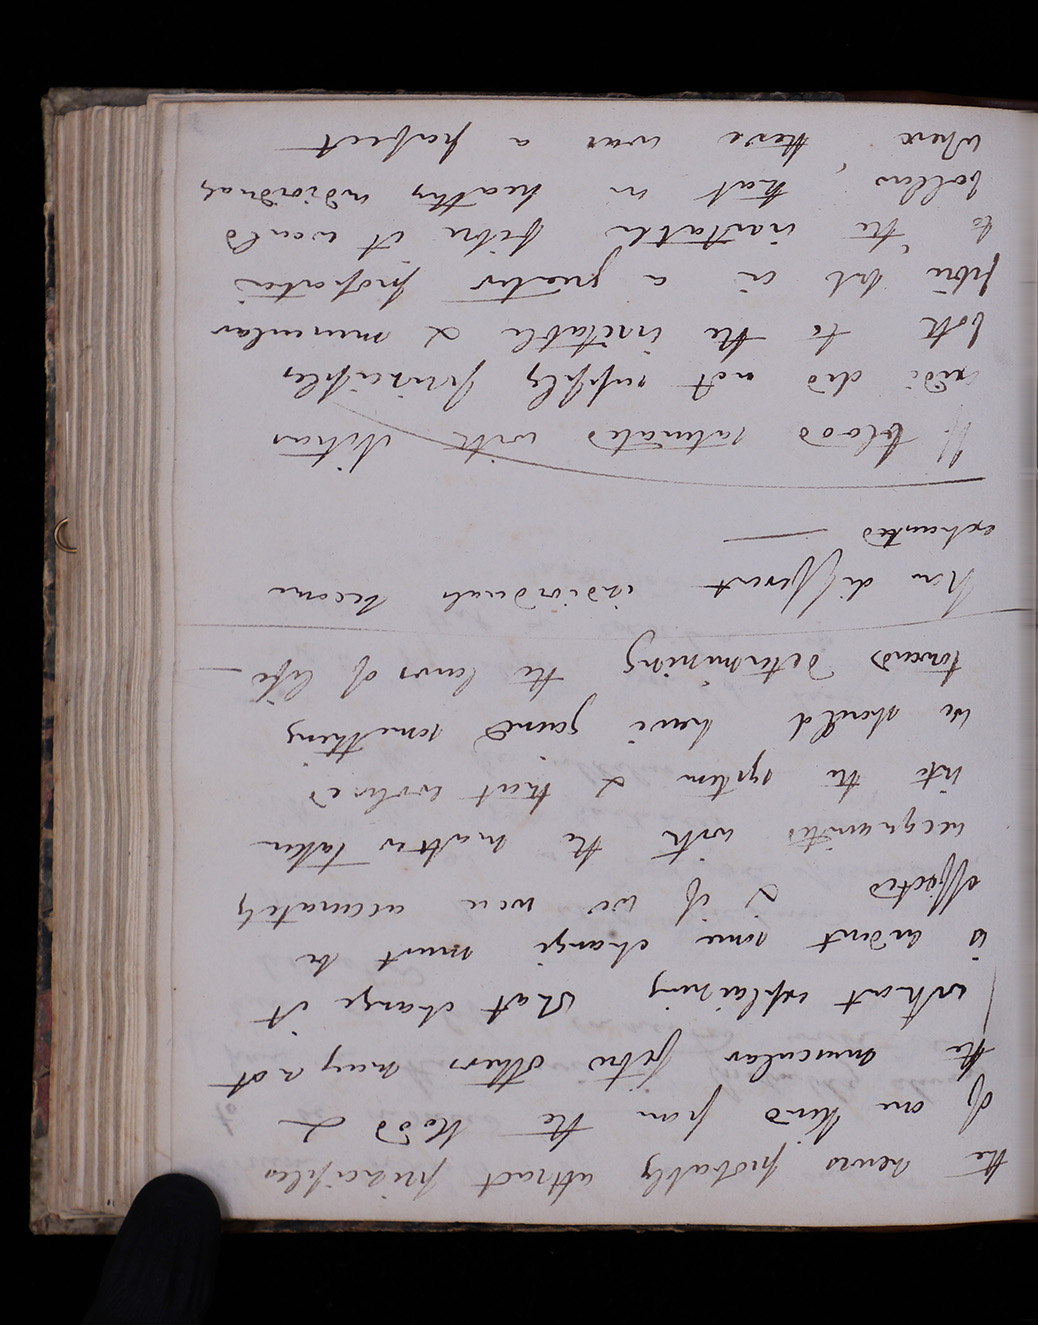 the nerves probably attract principles
of one kind from the blood &
the muscular fibre others may not
without explaining what change it
is evident some change must be
effected & if we were accurately
acquainted with the matter taken
into the system & that evolved
we should have gained something
towards determining the laws of life —
How different individuals become
exhausted —
If blood saturated with Nitrous
oxide did not supply principles
both to the irritable & muscular
fibre but in a greater proportion
to the irritable fibre it would
follow, that in healthy individuals
where there was a perfect